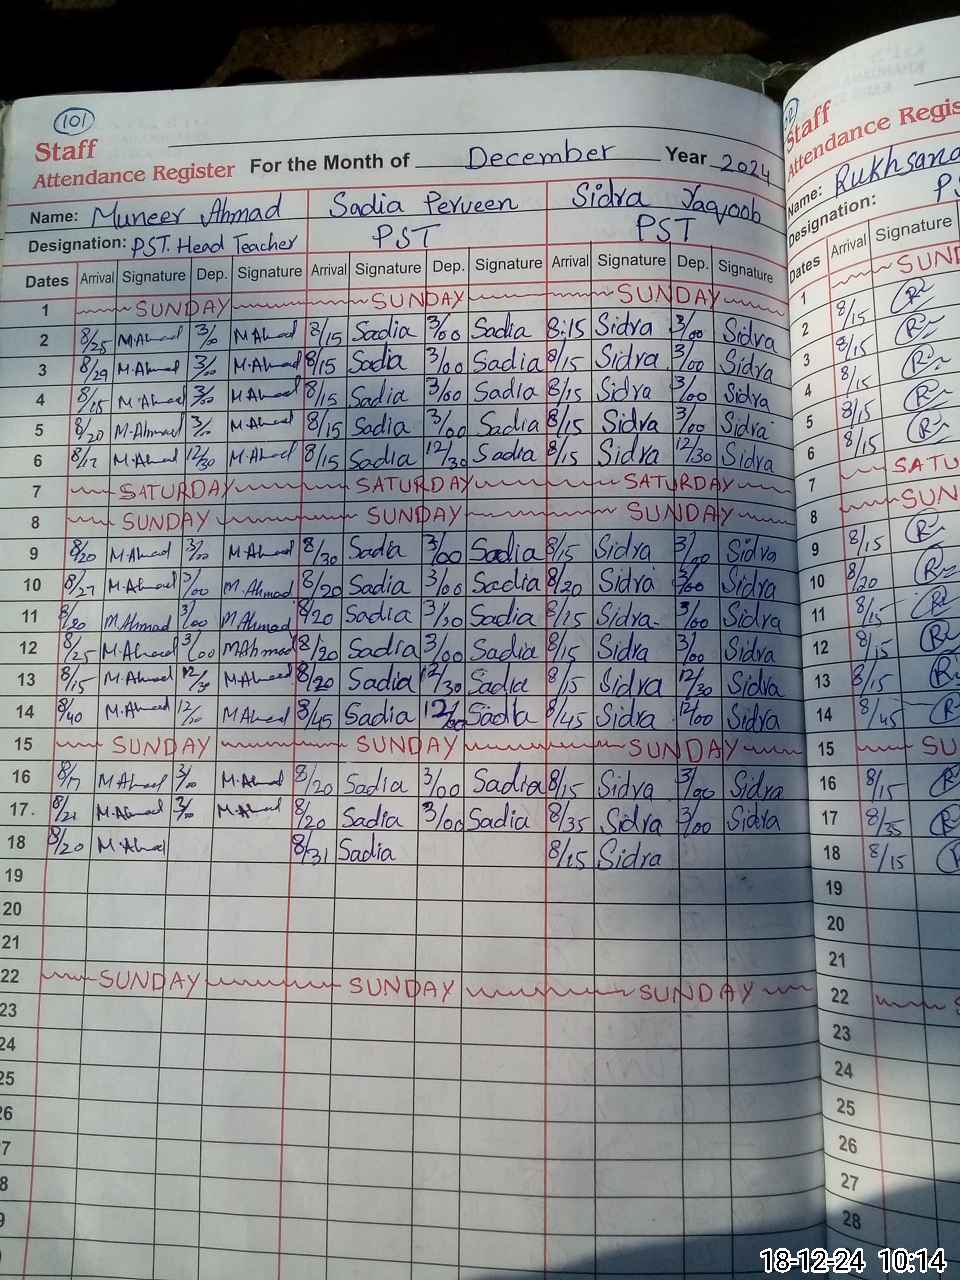 101
Staff
Attendance Register For the Month of December Year 2024
Name: Muneer Ahmad Sadia Perveen Sidra Yaqoob
Designation: PST. Head Teacher PST PST
Dates Arrival Signature Dep. Signature Arrival Signature Dep. Signature Arrival Signature Dep. Signature
1 SUNDAY SUNDAY SUNDAY
2 8/25 M Ahmad 3/00 M Ahmad 8/15 Sadia 3/00 Sadia 8:15 Sidra 3/00 Sidra
3 8/29 M.Ahmad 3/00 M.Ahmad 8/15 Sadia 3/00 Sadia 8/15 Sidra 3/00 Sidra
4 8/15 M.Ahmad 3/00 M.Ahmad 8/15 Sadia 3/00 Sadia 8/15 Sidra 3/00 Sidra
5 8/20 M.Ahmad 3/00 M.Ahmad 8/15 Sadia 3/00 Sadia 8/15 Sidra 3/00 Sidra
6 8/17 M.Ahmad 12/30 M.Ahmad 8/15 Sadia 12/30 Sadia 8/15 Sidra 12/30 Sidra
7 SATURDAY SATURDAY SATURDAY
8 SUNDAY SUNDAY SUNDAY
9 8/20 M.Ahmad 3/00 M.Ahmad 8/30 Sadia 3/00 Sadia 8/15 Sidra 3/00 Sidra
10 8/27 M.Ahmad 3/00 M.Ahmad 8/20 Sadia 3/00 Sadia 8/20 Sidra 3/00 Sidra
11 8/20 M Ahmad 3/00 M Ahmad 8/20 Sadia 3/30 Sadia 8/15 Sidra 3/00 Sidra
12 8/25 M.Ahmad 3/00 M Ahmad 8/20 Sadia 3/00 Sadia 8/15 Sidra 3/00 Sidra
13 8/15 M.Ahmad 12/30 M.Ahmad 8/20 Sadia 12/30 Sadia 8/15 Sidra 12/30 Sidra
14 8/40 M.Ahmad M Ahmad 8/45 Sadia 12/00 Sadia 8/45 Sidra 12/00 Sidra
15 SUNDAY SUNDAY SUNDAY
16 8/17 M Ahmad 3/00 M.Ahmad 8/20 Sadia 3/00 Sadia 8/15 Sidra 3/00 Sidra
17. 8/21 M.Ahmad 3/00 M.Ahmad 8/20 Sadia 3/00 Sadia 8/35 Sidra 3/00 Sidra
18 8/20 M.Ahmad 8/31 Sadia 8/15 Sidra
19
20
21
22 SUNDAY SUNDAY SUNDAY
23
24
25
26
7
8
9
Staff
Attendance Regis
Name: Rukhsana
Designation: PS
Dates Arrival Signature
1 SUND
2 8/15
3 8/15
4 8/15
5 8/15
6 8/15
7 SATU
8 SUN
9 8/15
10 8/20
11 8/15
12 8/15
13 8/15
14 8/45
15 SU
16 8/15
17 8/35
18 8/15
19
20
21
22 S
23
24
25
26
27
28
18-12-24 10:14